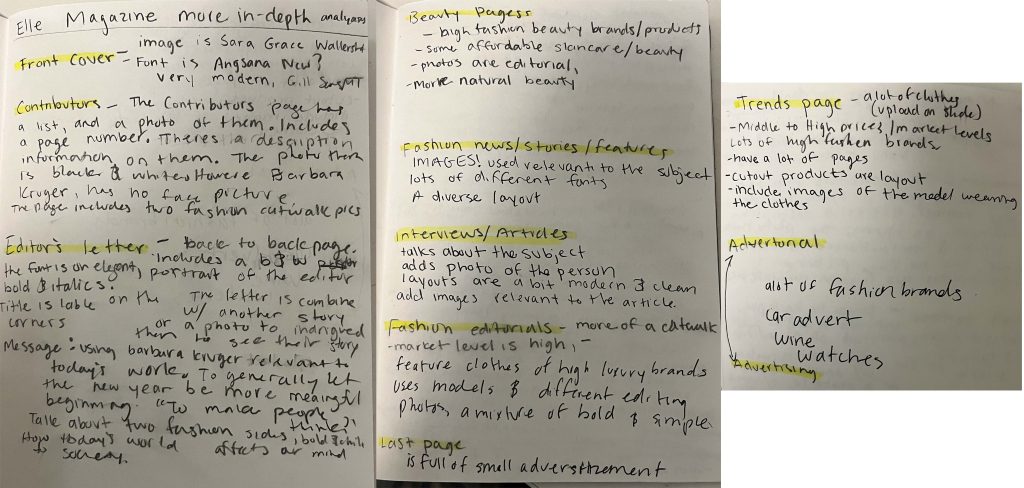 Elle Magazine more in-depth analyses
Front Cover - image is Sara Grace
- Font is Angsana New?
very modern, Gill
Contributors - The Contributors page has
a list, and a photo of them. Includes
a page number. Theres a description
information, on them. The photo
is black & white. Barbara
Kruger, has no face picture
The page includes two fashion catwalk pics
Editor's letter - back to back page.
Includes a b&w
the font is an elegant, portrait of the editor
bold & italics.
Title is on the
corners
The letter is combine
w/ another story
or a photo to
them to see their story
Message: using barbara kruger relevant to
today's work. To generally let
the new year be more meaningful
beginning. "To make people
think?"
Talk about two fashion sides, bold &
How today's world affects our mind
to society.
Beauty Pagess
- high fashion beauty brands/products
- some affordable skincare/beauty
- photos are editorial,
- more natural beauty
Fashion news/stories/features
IMAGES! used relevant to the subject
lots of different fonts
A diverse layout
Interviews/Articles
talks about the subject
adds photo of the person
layouts are a bit modern & clean
add images relevant to the article.
Fashion editorials - more of a catwalk
- market level is high, -
feature clothes of high luxury brands
uses models & different editing
photos, a mixture of bold & simple
Last page
is full of small
Trends page - alot of clothes
(upload on slide)
- Middle to High prices/market levels
Lots of high fashen brands
- have a lot of pages
- cutout products are layout
- include images of the model wearing
the clothes
Advertorial
alot of fashion brands
car advert
wine
watches
Advertising